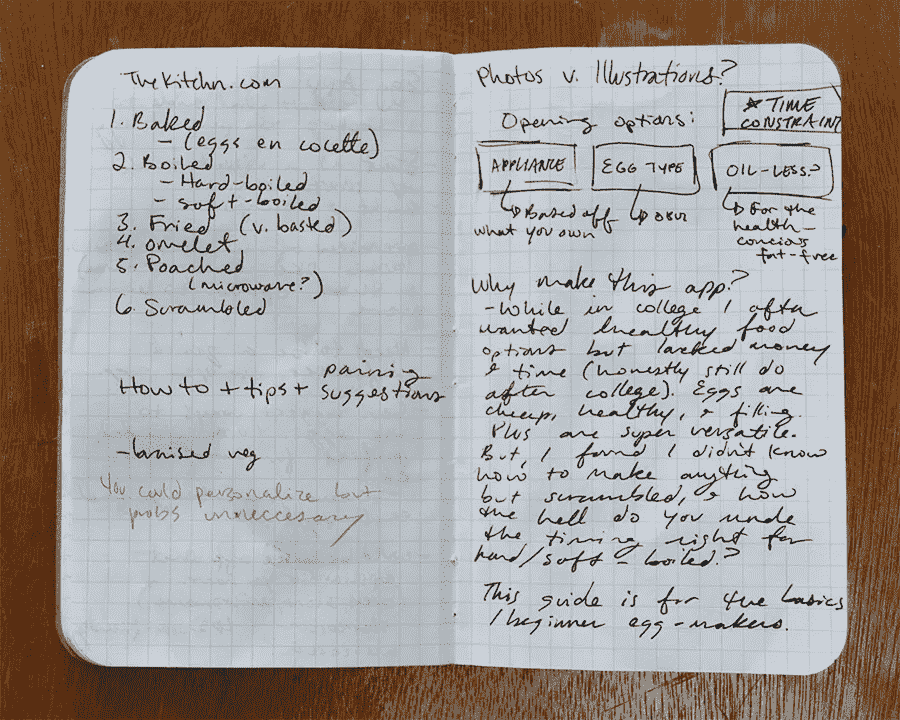 TheKitchn.com
1. Baked
- (eggs en cocette)
2. Boiled
- Hard-boiled
- soft-boiled
3. Fried (v. basted)
4. omelet
5. Poached
(microwave?)
6. Scrambled
How to + tips + pairing suggestions
- braised veg
You could personalize but
probs unneccesary
Photos v. Illustrations?
★ TIME
CONSTRAINT
Opening options:
APPLIANCE
EGG TYPE
OIL-LESS?
↳ Based off
what you own
↳ For the
health-
concious
fat-free
Why make this app?
- While in college I often
wanted healthy food
options but lacked money
& time (honestly still do
after college). Eggs are
cheap, healthy, & filling.
Plus are super versatile.
But, I found I didn't know
how to make anything
but scrambled, & how
the hell do you
the timing right for
hard/soft-boiled?
This guide is for the basics
/beginner egg-makers.